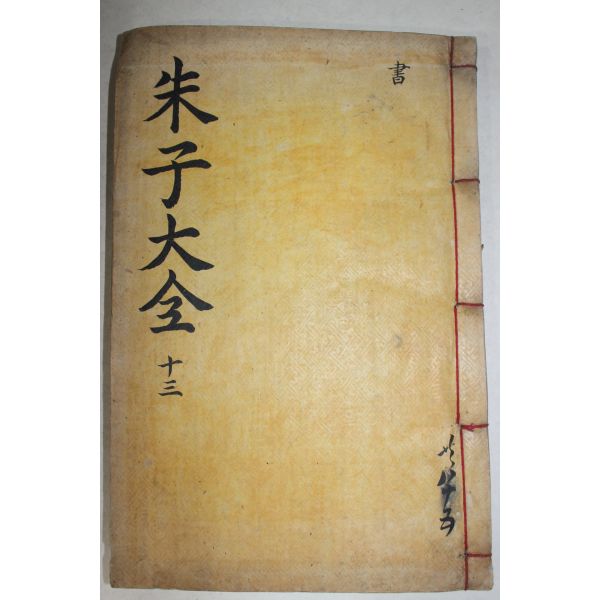 書
朱子大全
十三